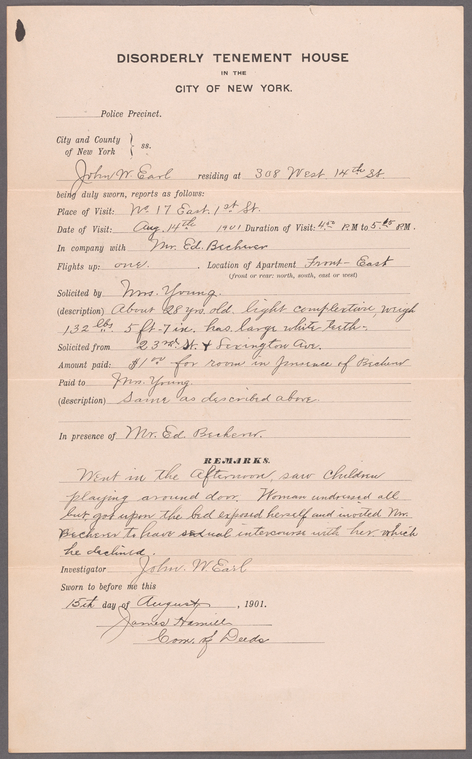 DISORDERLY TENEMENT HOUSE
IN THE
CITY OF NEW YORK.
Police Precinct.
City and County
of New York } ss.
John W Earl residing at 308 West 14th St.
being duly sworn, reports as follows:
Place of Visit: No 17 East 1st St.
Date of Visit: Aug. 14th 1901 Duration of Visit: P.M to P.M.
In company with Mr. Ed. Becherer
Flights up: one. Location of Apartment Front-East
(front or rear: north, south, east or west)
Solicited by Mrs. Young.
(description) About 28 yrs. old. light complextion, weigh
132 lbs. 5 ft-7 in. has large white teeth.
Solicited from 23rd St. & Lexington Ave.
Amount paid: $1.00 for room in presence of Becherer
Paid to Mrs. Young
(description) Same as described above
In presence of Mr. Ed. Becherer.
REMARKS.
Went in the Afternoon, saw children
playing around door. Woman undressed all
but got upon the bed exposed herself and invited Mr.
Becherer to have sexual intercourse with her which
he declined.
Investigator John. W Earl
Sworn to before me this
15th day of August, 1901.
James Hamill
Com. of Deeds